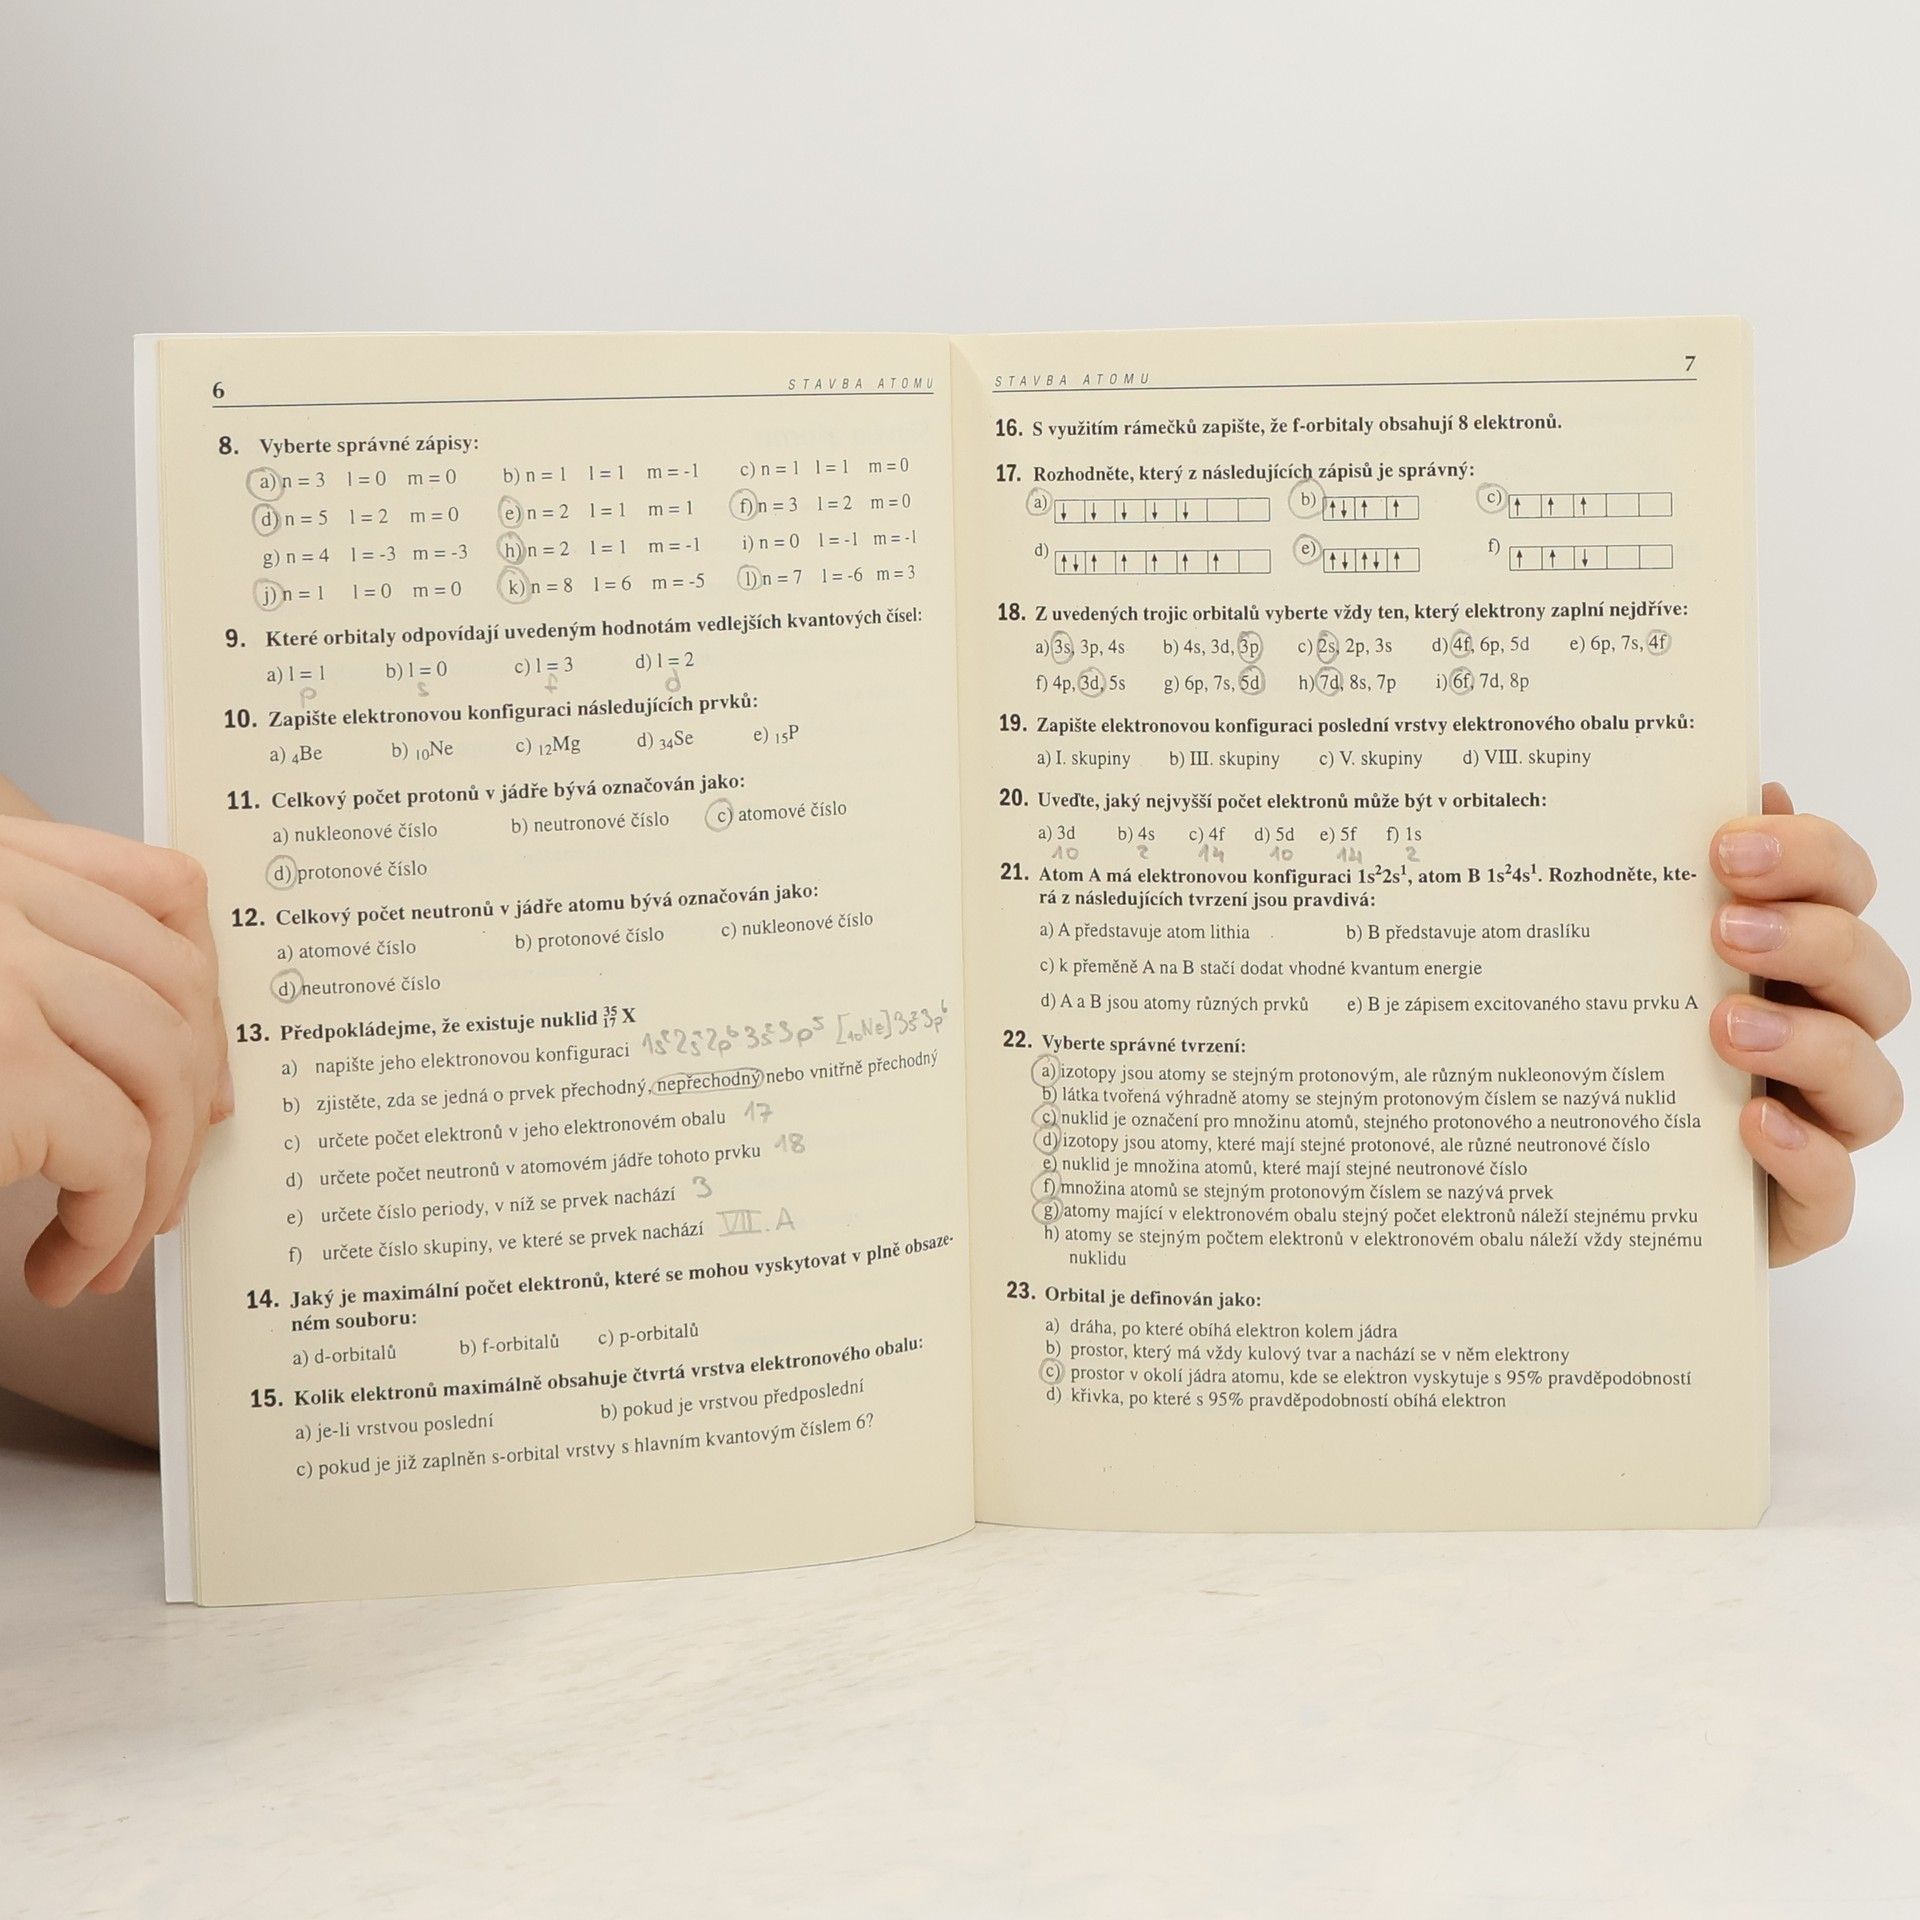 6 STAVBA ATOMU
8. Vyberte správné zápisy:
a) n = 3 l = 0 m = 0 b) n = 1 l = 1 m = -1 c) n = 1 l = 1 m = 0
d) n = 5 l = 2 m = 0 e) n = 2 l = 1 m = 1 f) n = 3 l = 2 m = 0
g) n = 4 l = -3 m = -3 h) n = 2 l = 1 m = -1 i) n = 0 l = -1 m = -1
j) n = 1 l = 0 m = 0 k) n = 8 l = 6 m = -5 l) n = 7 l = -6 m = 3
9. Které orbitaly odpovídají uvedeným hodnotám vedlejších kvantových čísel:
a) l = 1 b) l = 0 c) l = 3 d) l = 2
p s f d
10. Zapište elektronovou konfiguraci následujících prvků:
a) ₄Be b) ₁₀Ne c) ₁₂Mg d) ₃₄Se e) ₁₅P
11. Celkový počet protonů v jádře bývá označován jako:
a) nukleonové číslo b) neutronové číslo c) atomové číslo
d) protonové číslo
12. Celkový počet neutronů v jádře atomu bývá označován jako:
a) atomové číslo b) protonové číslo c) nukleonové číslo
d) neutronové číslo
13. Předpokládejme, že existuje nuklid ³⁵₁₇X
a) napište jeho elektronovou konfiguraci 1s²2s²2p⁶3s²3p⁵ [₁₀Ne]3s²3p⁶
b) zjistěte, zda se jedná o prvek přechodný, nepřechodný nebo vnitřně přechodný
c) určete počet elektronů v jeho elektronovém obalu 17
d) určete počet neutronů v atomovém jádře tohoto prvku 18
e) určete číslo periody, v níž se prvek nachází 3
f) určete číslo skupiny, ve které se prvek nachází VII.A
14. Jaký je maximální počet elektronů, které se mohou vyskytovat v plně obsaze-
ném souboru:
a) d-orbitalů b) f-orbitalů c) p-orbitalů
15. Kolik elektronů maximálně obsahuje čtvrtá vrstva elektronového obalu:
a) je-li vrstvou poslední b) pokud je vrstvou předposlední
c) pokud je již zaplněn s-orbital vrstvy s hlavním kvantovým číslem 6?
STAVBA ATOMU 7
16. S využitím rámečků zapište, že f-orbitaly obsahují 8 elektronů.
17. Rozhodněte, který z následujících zápisů je správný:
a) ↓ ↓ ↓ ↓ ↓ b) ↑↓ ↑ ↑ c) ↑ ↑ ↑
d) ↑↓ ↑ ↑ ↑ ↑ ↑ e) ↑↓ ↑↓ ↑ f) ↑ ↑ ↓
18. Z uvedených trojic orbitalů vyberte vždy ten, který elektrony zaplní nejdříve:
a) 3s, 3p, 4s b) 4s, 3d, 3p c) 2s, 2p, 3s d) 4f, 6p, 5d e) 6p, 7s, 4f
f) 4p, 3d, 5s g) 6p, 7s, 5d h) 7d, 8s, 7p i) 6f, 7d, 8p
19. Zapište elektronovou konfiguraci poslední vrstvy elektronového obalu prvků:
a) I. skupiny b) III. skupiny c) V. skupiny d) VIII. skupiny
20. Uveďte, jaký nejvyšší počet elektronů může být v orbitalech:
a) 3d b) 4s c) 4f d) 5d e) 5f f) 1s
10 2 14 10 14 2
21. Atom A má elektronovou konfiguraci 1s²2s¹, atom B 1s²4s¹. Rozhodněte, kte-
rá z následujících tvrzení jsou pravdivá:
a) A představuje atom lithia b) B představuje atom draslíku
c) k přeměně A na B stačí dodat vhodné kvantum energie
d) A a B jsou atomy různých prvků e) B je zápisem excitovaného stavu prvku A
22. Vyberte správné tvrzení:
a) izotopy jsou atomy se stejným protonovým, ale různým nukleonovým číslem
b) látka tvořená výhradně atomy se stejným protonovým číslem se nazývá nuklid
c) nuklid je označení pro množinu atomů, stejného protonového a neutronového čísla
d) izotopy jsou atomy, které mají stejné protonové, ale různé neutronové číslo
e) nuklid je množina atomů, které mají stejné neutronové číslo
f) množina atomů se stejným protonovým číslem se nazývá prvek
g) atomy mající v elektronovém obalu stejný počet elektronů náleží stejnému prvku
h) atomy se stejným počtem elektronů v elektronovém obalu náleží vždy stejnému
nuklidu
23. Orbital je definován jako:
a) dráha, po které obíhá elektron kolem jádra
b) prostor, který má vždy kulový tvar a nachází se v něm elektrony
c) prostor v okolí jádra atomu, kde se elektron vyskytuje s 95% pravděpodobností
d) křivka, po které s 95% pravděpodobností obíhá elektron